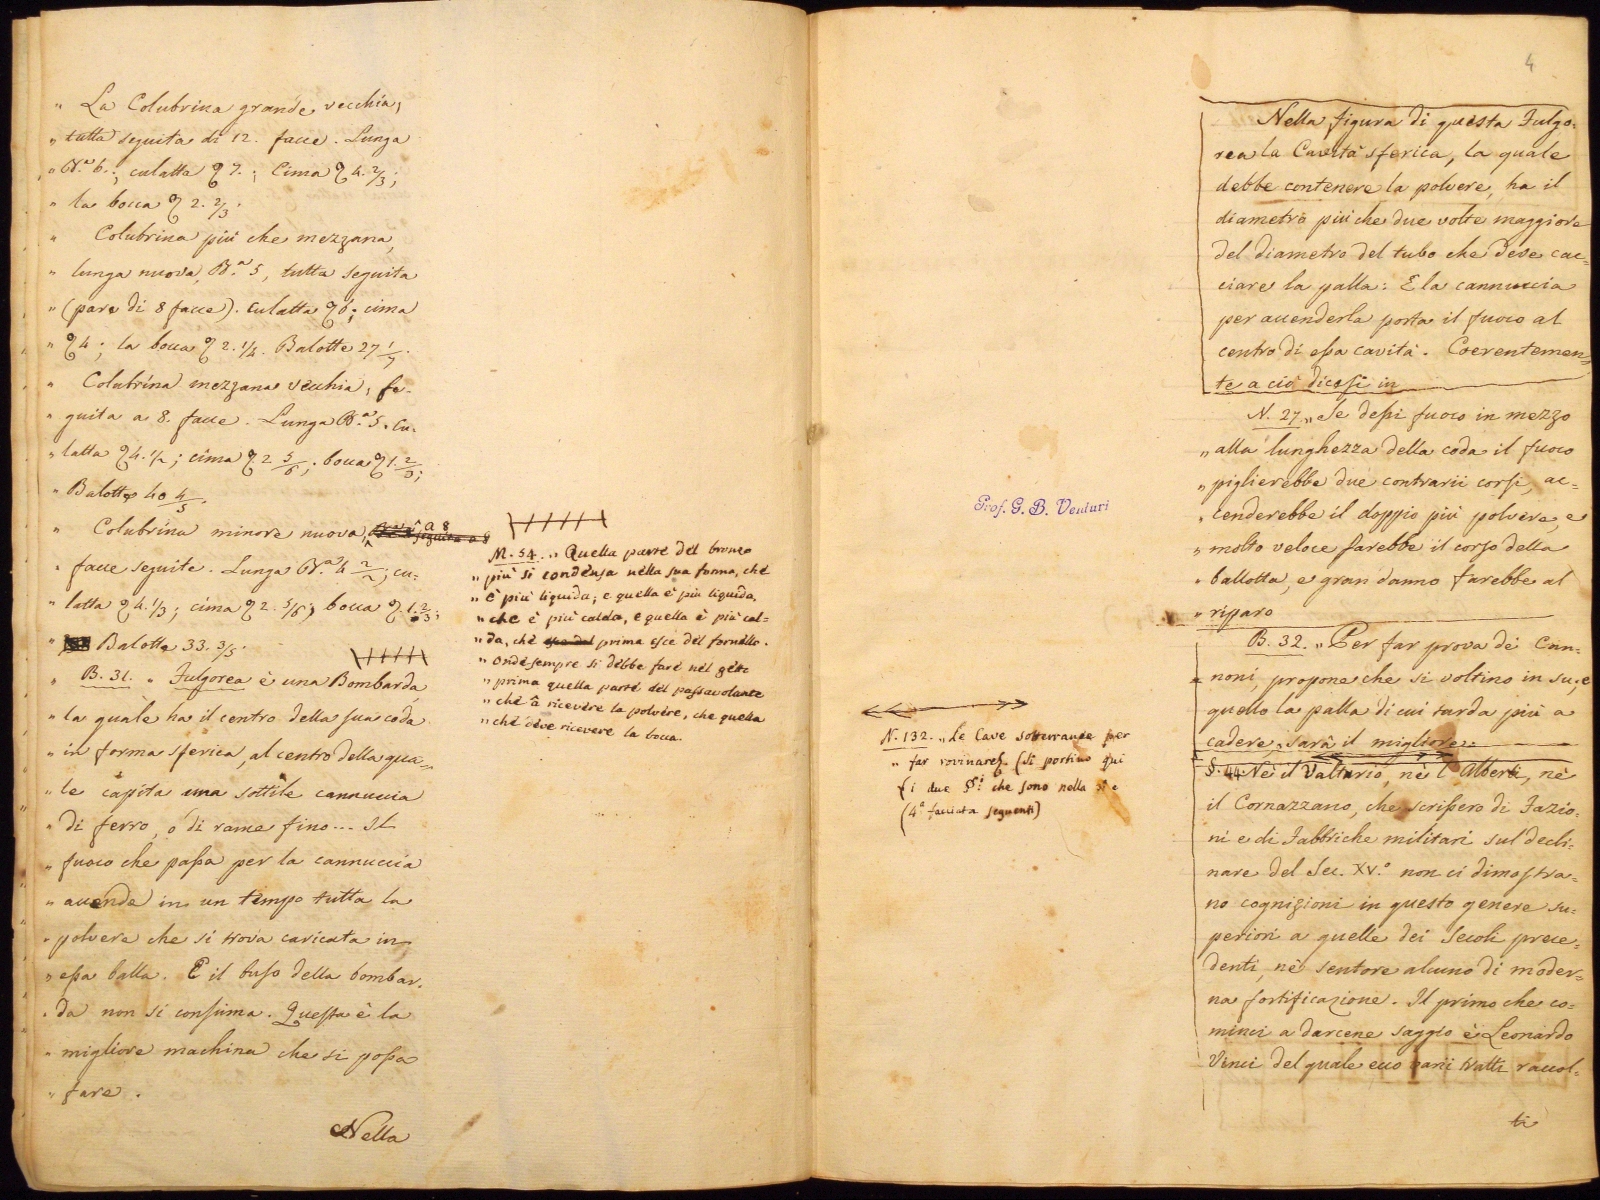 " La Colubrina grande vecchia,
" tutta seguita di 12. facce. Lunga
" Br.a 6.; culatta 7.; Cima 4. 2/3;
" la bocca 2. 2/3.
" Colubrina più che mezzana,
" lunga nuova, Br.a 5, tutta seguita
" (pare di 8 facce). Culatta 6; cima
" 4; la bocca 2. 1/4. Balotte 27 1/7.
" Colubrina mezzana vecchia, se-
" guita a 8. facce. Lunga Br.a 5. cu-
" latta 4. 1/2; cima 2 5/6; bocca 1. 2/3;
" Balotte 40 4/5.
" Colubrina minore nuova, a 8
" facce seguite. Lunga Br.a 4 2/2; cu-
" latta 4. 1/3; cima 2. 5/6; bocca 1. 2/3;
" Balotte 33. 3/5.
" B. 31. " Fulgorea è una Bombarda
" la quale ha il centro della sua coda
" in forma sferica, al centro della qua-
" le capita una sottile cannuccia
" di ferro, o di rame fino... Il
" fuoco che passa per la cannuccia
" accende in un tempo tutta la
" polvere che si trova caricata in
" essa balla. E il buso della bombar-
" da non si consuma. Questa è la
" migliore machina che si possa
" fare.
Nella
M. 54. " Quella parte del bronzo
" più si condensa nella sua forma, che
" è più liquida; e quella è più liquida,
" che è più calda, e quella è più cal-
" da, che prima esce del fornello.
" Onde sempre si debbe fare nel gitto
" prima quella parte del passavolante
" che à ricevere la polvere, che quella
" che deve ricevere la bocca.
Prof. G. B. Venturi
N. 132. " Le Cave sotterranee per
" far rovinare. (Si portino qui
(i due §.i che sono nella 3.a e
(4.a facciata seguenti)
4
Nella figura di questa Fulgo-
rea la Cavità sferica, la quale
debbe contenere la polvere, ha il
diametro più che due volte maggiore
del diametro del tubo che deve cac-
ciare la palla: E la cannuccia
per accenderla porta il fuoco al
centro di essa cavità. Coerentemen-
te a ciò dicesi in
N. 27. " Se dessi fuoco in mezzo
" alla lunghezza della coda il fuoco
" piglierebbe due contrarii corsi, ac-
" cenderebbe il doppio più polvere, e
" molto veloce farebbe il corso della
" ballotta, e gran danno farebbe al
" riparo
B. 32. " Per far prova de' Can-
noni, propone che si voltino in su; e
quello la palla di cui tarda più a
cadere, sarà il migliore.
§. 44. Nè il Valturio, nè l'Alberti, nè
il Cornazzano, che scrissero di Fazio-
ni e di Fabbriche militari sul decli-
nare del Sec. XV.o non ci dimostra-
no cognizioni in questo genere su-
periori a quelle dei Secoli prece-
denti, nè sentore alcuno di moder-
na fortificazione. Il primo che co-
minci a darcene saggio è Leonardo
Vinci del quale ecco varii tratti raccol-
ti